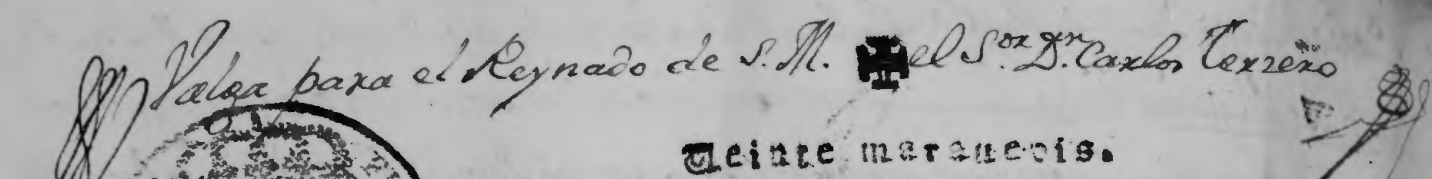 Valga para el Reynado de S. M. el S.or D.n Carlos Terzero
Veinte marauedis.